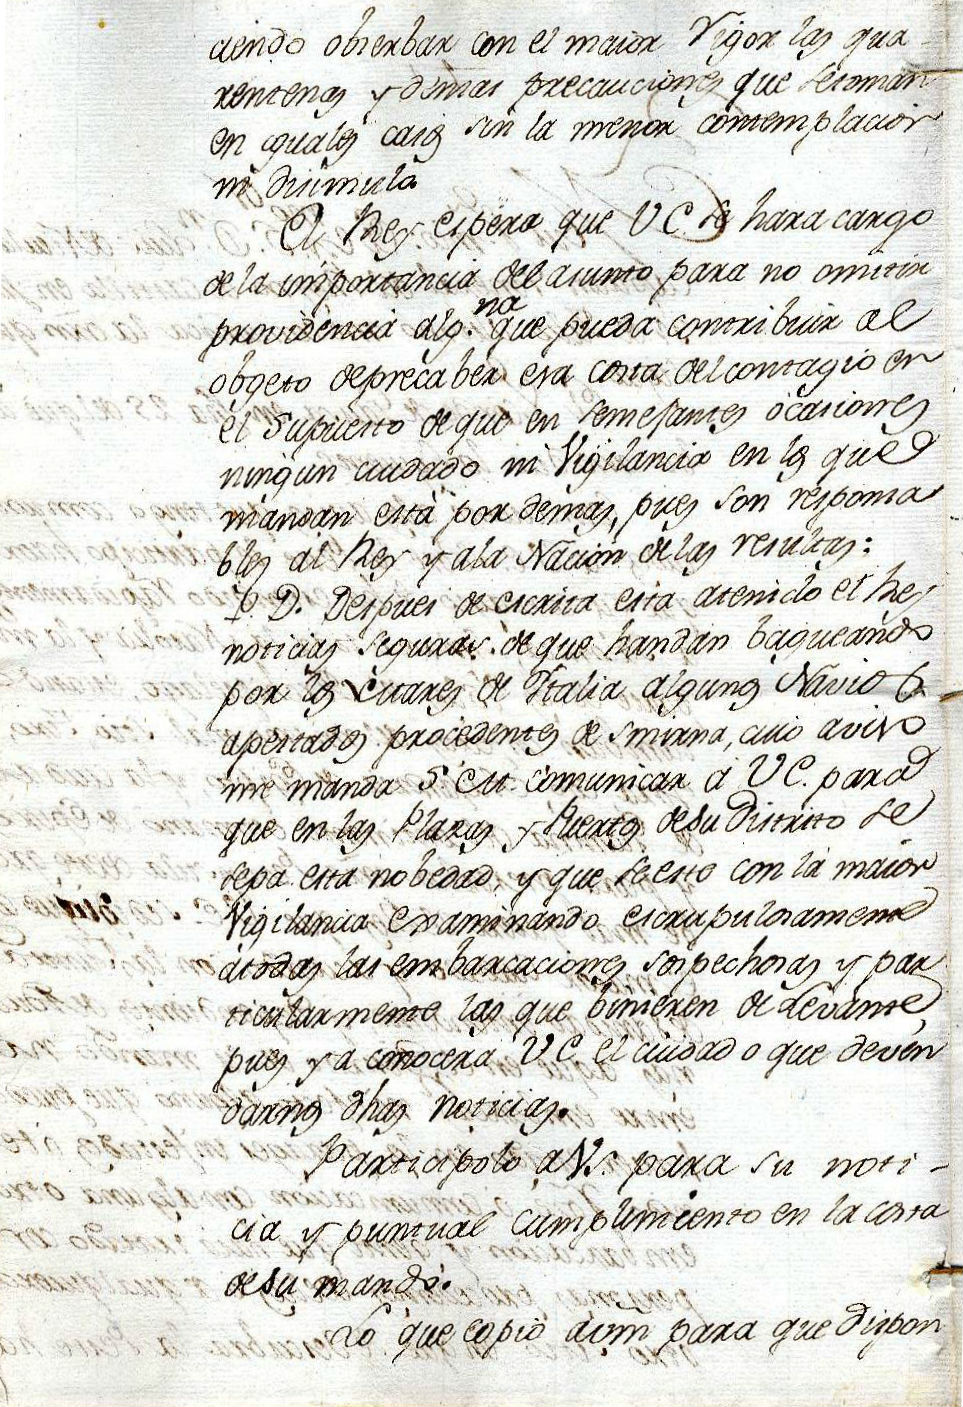 ciendo obserbar con el maior Vigor las qua-
rentenas y demas precauciones que se toman
en yguales casos sin la menor contemplacion
ni disimulo.
El Rey espera que V C. se hara cargo
de la importancia del asunto para no omitir
providencia alg.na que pueda contribuir al
obgeto deprecaber esa costa del contagio en
el Supuesto de que en semejantes ocasiones
ningun cuidado ni Vigilancia en los que
mandan está por demas, pues son responsa
bles al Rey y ala Nacion de las resultas:
P. D. Despues de escrita esta atenido el Rey
noticias seguras de que handan baqueando
por los Mares de Italia algunos Navios
apestados procedentes de Smirna, cuio aviso
me manda S. M. comunicar á V C. para
que en las Plazas y Puertos desu Distrito se
sepa esta nobedad, y que se este con la maior
Vigilancia examinando escrupulosamente
atodas las embarcaciones sospechosas y par
ticularmente las que binieren de Levante,
pues ya conocerá V C. el cuidado que deven
darnos dhas noticias.
Participolo aVs. para su noti-
cia y puntual cumplimiento en la costa
desu mando.
Lo que copio avm para que dispon